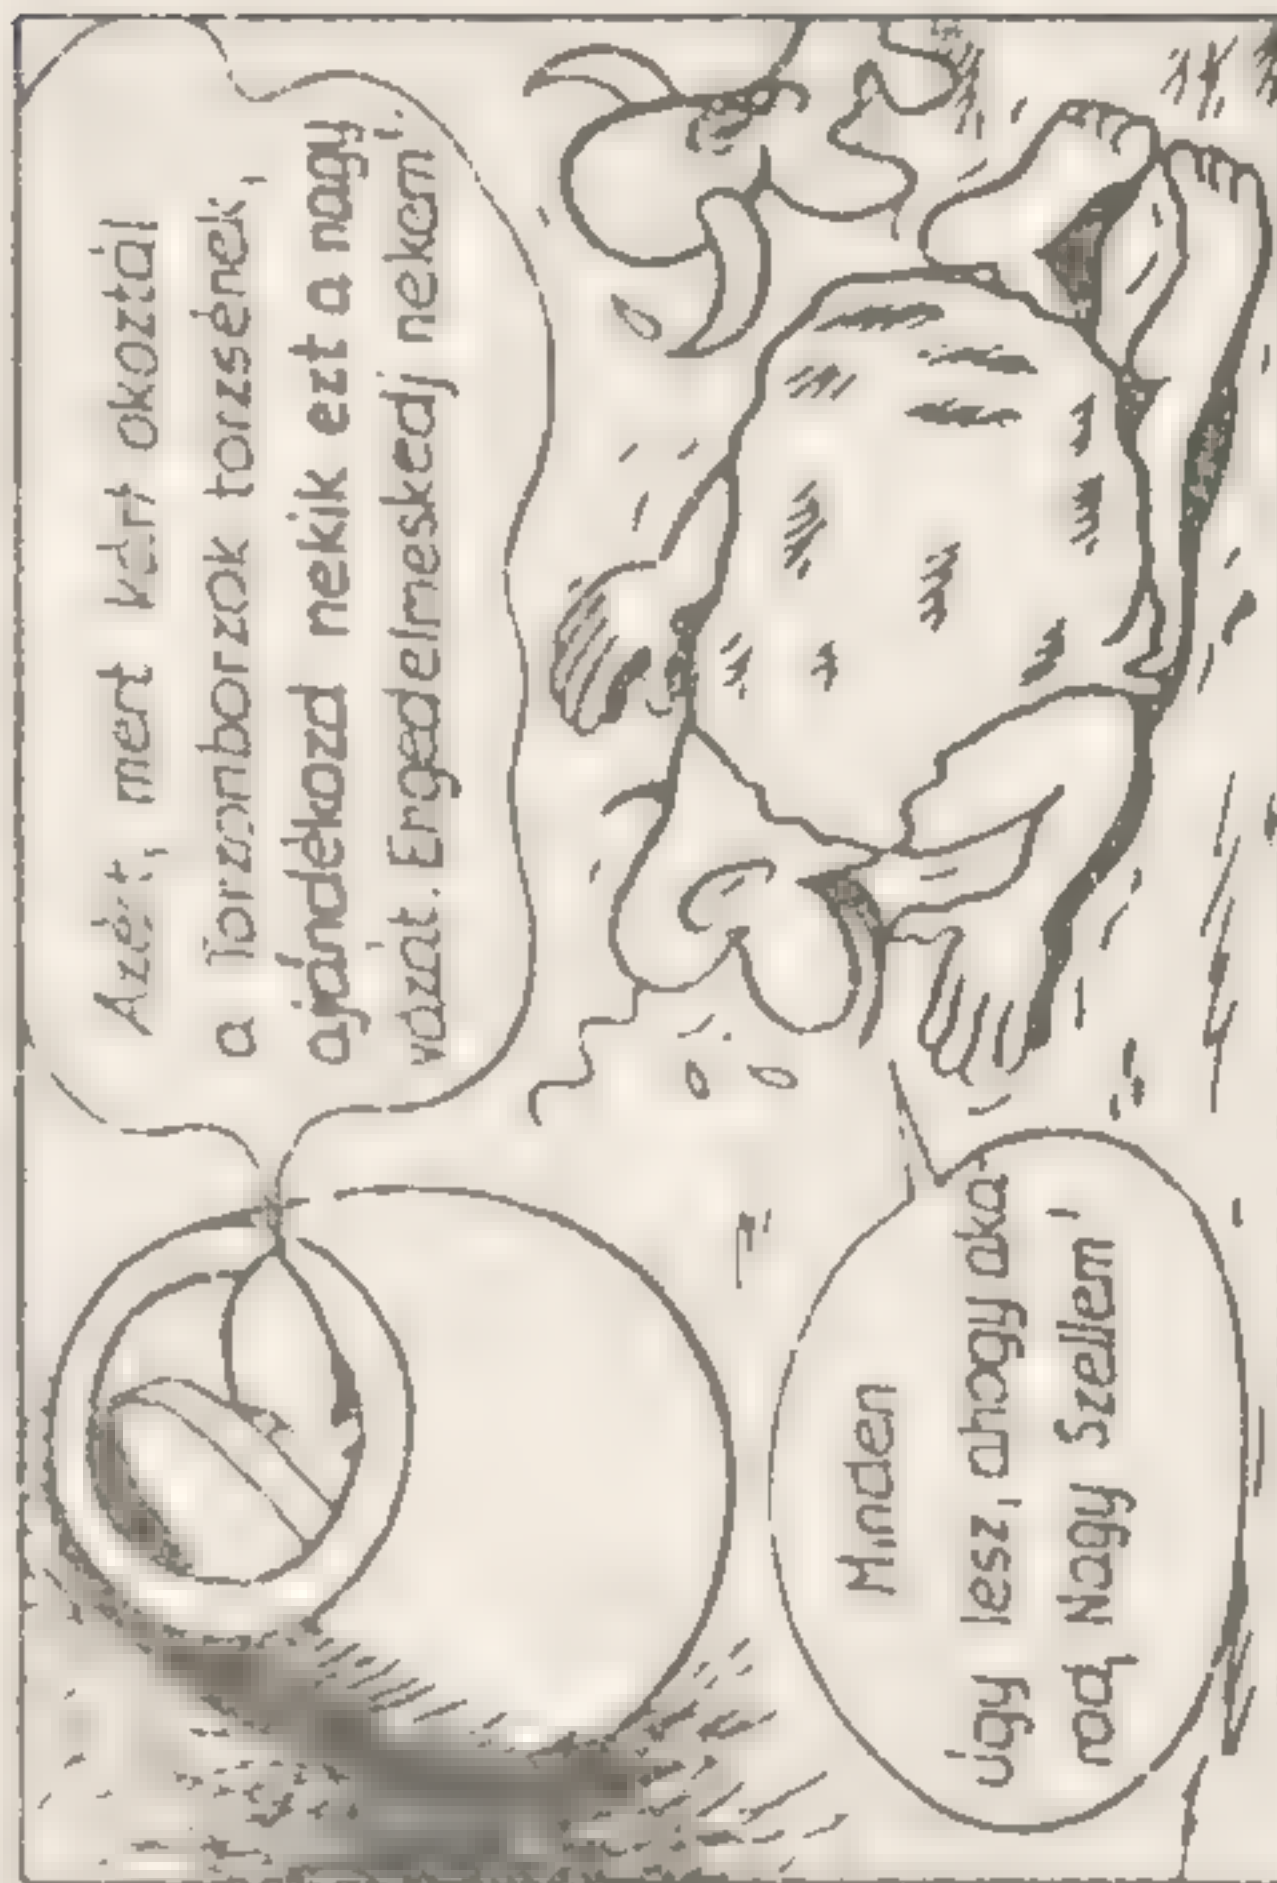 Azért, mert kárt okoztál
a Torzonborzok torzsének,
ajándékozd nekik ezt a nagy
vázát. Engedelmeskedj nekem!
Minden
úgy lesz, ahogy aka-
rod, Nagy Szellem!